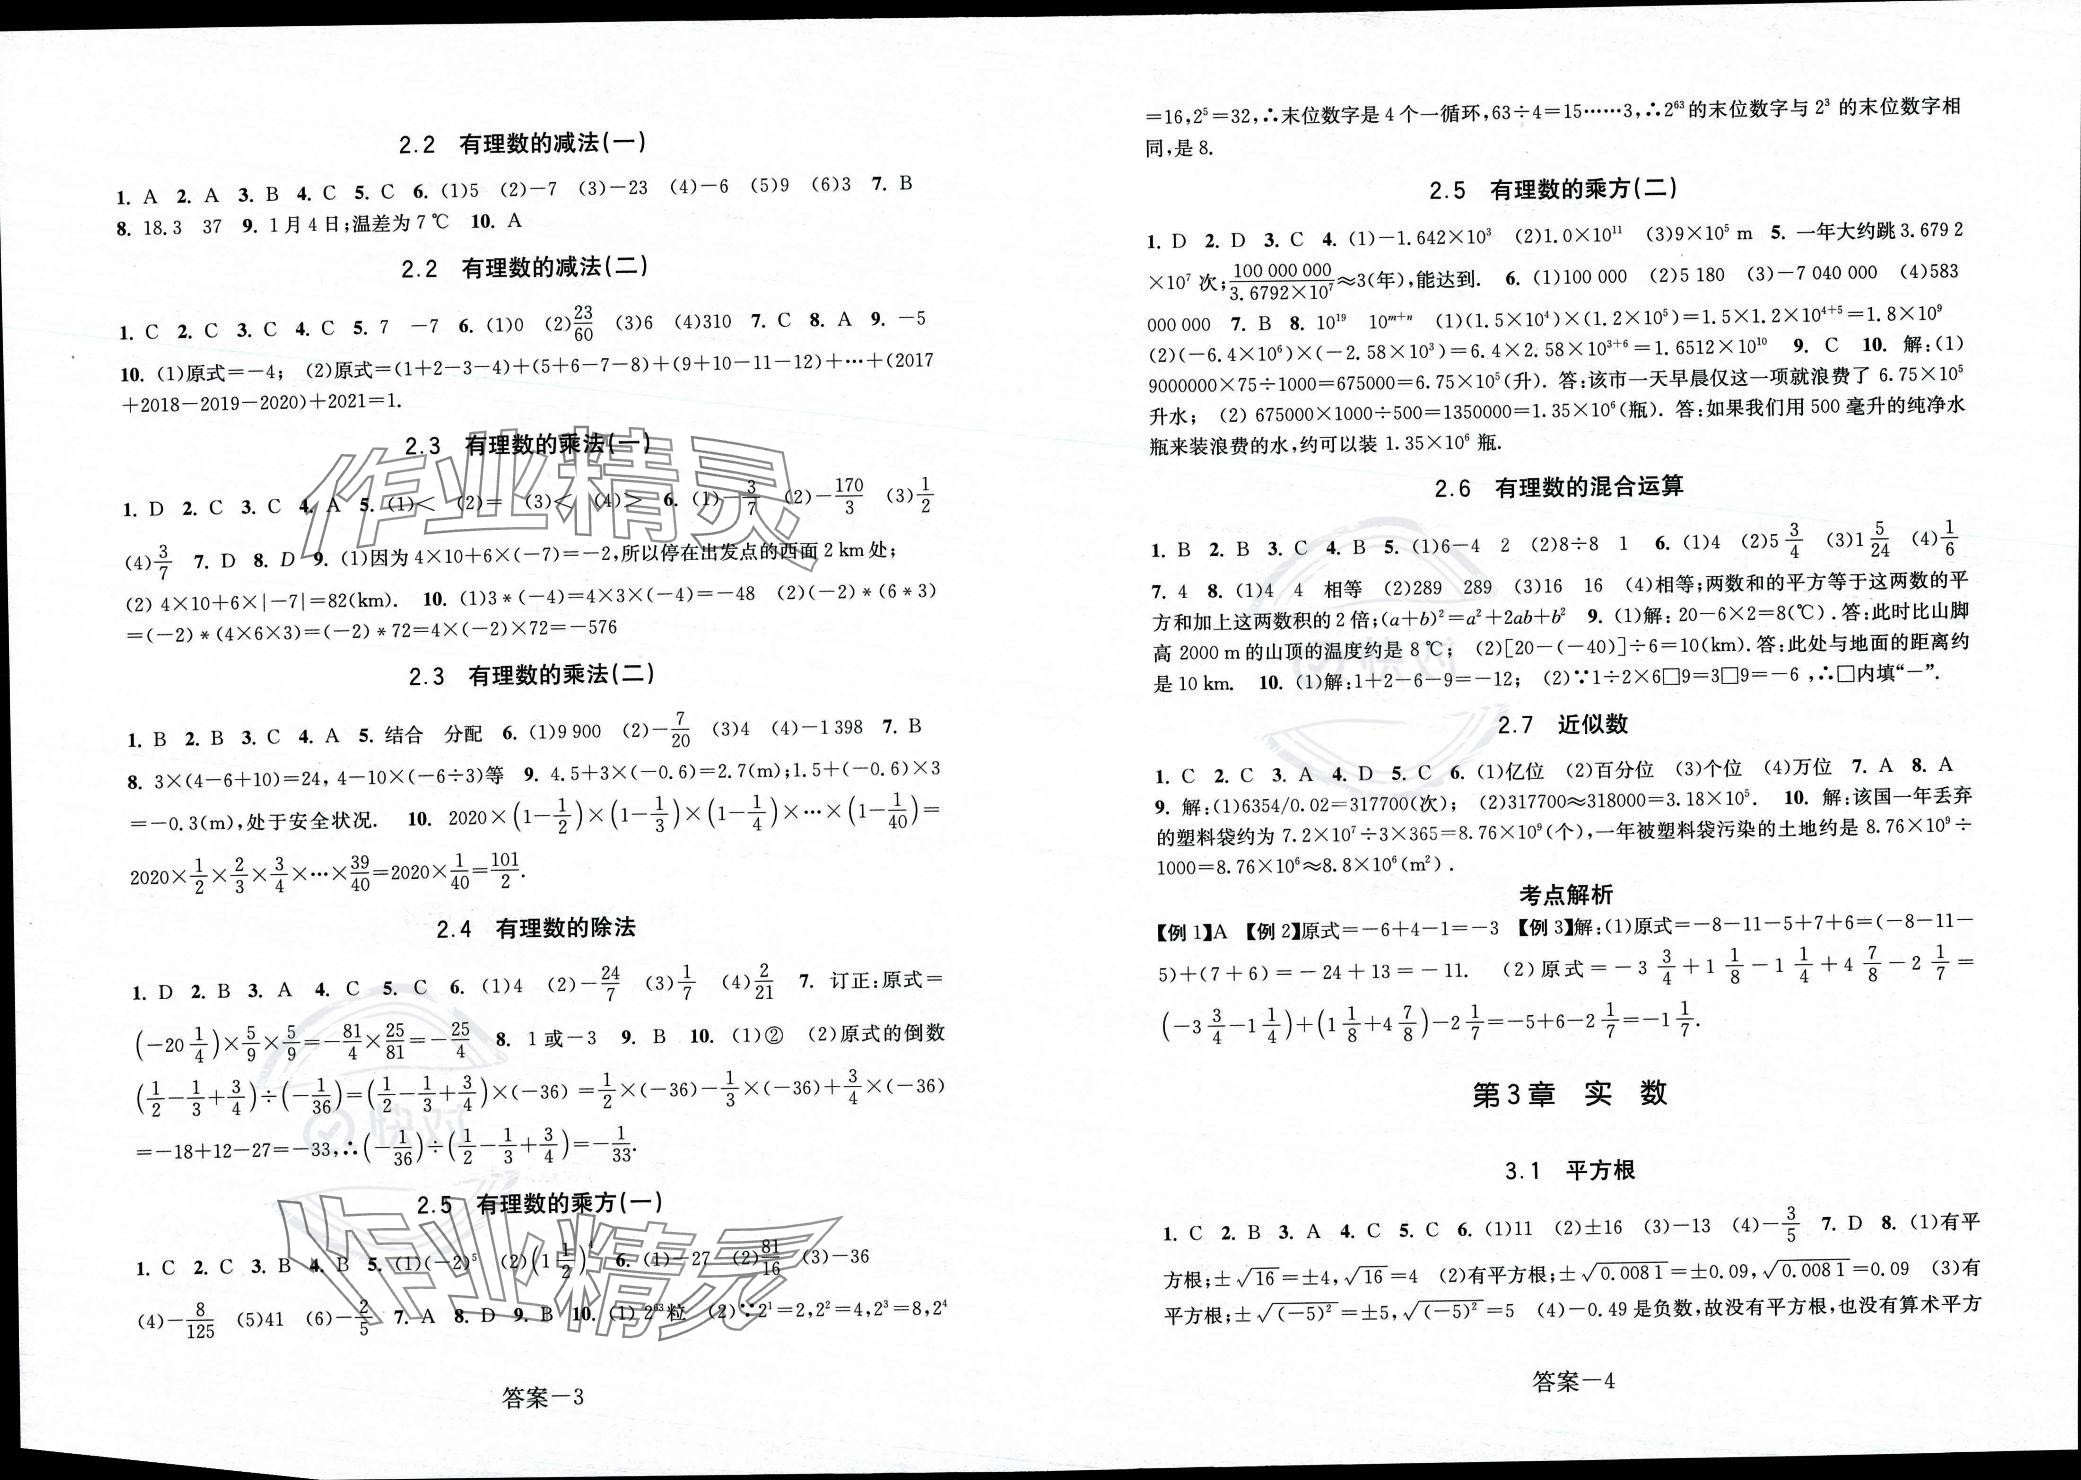 2.2 有理数的减法(一)
1. A 2. A 3. B 4. C 5. C 6. (1)5 (2)−7 (3)−23 (4)−6 (5)9 (6)3 7. B
8. 18.3 37 9. 1月4日;温差为7 ℃ 10. A
2.2 有理数的减法(二)
1. C 2. C 3. C 4. C 5. 7 −7 6. (1)0 (2)23/60 (3)6 (4)310 7. C 8. A 9. −5
10. (1)原式=−4; (2)原式=(1+2−3−4)+(5+6−7−8)+(9+10−11−12)+…+(2017
+2018−2019−2020)+2021=1.
2.3 有理数的乘法(一)
1. D 2. C 3. C 4. A 5. (1)< (2)= (3)< (4)> 6. (1)−3/7 (2)−170/3 (3)1/2
(4)3/7 7. D 8. D 9. (1)因为4×10+6×(−7)=−2,所以停在出发点的西面2 km处;
(2) 4×10+6×|−7|=82(km). 10. (1)3*(−4)=4×3×(−4)=−48 (2)(−2)*(6*3)
=(−2)*(4×6×3)=(−2)*72=4×(−2)×72=−576
2.3 有理数的乘法(二)
1. B 2. B 3. C 4. A 5. 结合 分配 6. (1)9 900 (2)−7/20 (3)4 (4)−1 398 7. B
8. 3×(4−6+10)=24, 4−10×(−6÷3)等 9. 4.5+3×(−0.6)=2.7(m);1.5+(−0.6)×3
=−0.3(m),处于安全状况. 10. 2020×(1−1/2)×(1−1/3)×(1−1/4)×…×(1−1/40)=
2020×1/2×2/3×3/4×…×39/40=2020×1/40=101/2.
2.4 有理数的除法
1. D 2. B 3. A 4. C 5. C 6. (1)4 (2)−24/7 (3)1/7 (4)2/21 7. 订正:原式=
(−20 1/4)×5/9×5/9=−81/4×25/81=−25/4 8. 1或−3 9. B 10. (1)② (2)原式的倒数
(1/2−1/3+3/4)÷(−1/36)=(1/2−1/3+3/4)×(−36)=1/2×(−36)−1/3×(−36)+3/4×(−36)
=−18+12−27=−33,∴(−1/36)÷(1/2−1/3+3/4)=−1/33.
2.5 有理数的乘方(一)
1. C 2. C 3. B 4. B 5. (1)(−2)⁵ (2)(1 1/2)⁴ 6. (1)−27 (2)81/16 (3)−36
(4)−8/125 (5)41 (6)−2/5 7. A 8. D 9. B 10. (1) 2⁶³粒 (2)∵2¹=2,2²=4,2³=8,2⁴
答案−3
=16,2⁵=32,∴末位数字是4个一循环,63÷4=15……3,∴2⁶³的末位数字与2³的末位数字相
同,是8.
2.5 有理数的乘方(二)
1. D 2. D 3. C 4. (1)−1.642×10³ (2)1.0×10¹¹ (3)9×10⁵ m 5. 一年大约跳3.679 2
×10⁷次;100 000 000/3.6792×10⁷≈3(年),能达到. 6. (1)100 000 (2)5 180 (3)−7 040 000 (4)583
000 000 7. B 8. 10¹⁹ 10ᵐ⁺ⁿ (1)(1.5×10⁴)×(1.2×10⁵)=1.5×1.2×10⁴⁺⁵=1.8×10⁹
(2)(−6.4×10⁶)×(−2.58×10³)=6.4×2.58×10³⁺⁶=1.6512×10¹⁰ 9. C 10. 解:(1)
9000000×75÷1000=675000=6.75×10⁵(升). 答:该市一天早晨仅这一项就浪费了6.75×10⁵
升水; (2) 675000×1000÷500=1350000=1.35×10⁶(瓶). 答:如果我们用500毫升的纯净水
瓶来装浪费的水,约可以装1.35×10⁶瓶.
2.6 有理数的混合运算
1. B 2. B 3. C 4. B 5. (1)6−4 2 (2)8÷8 1 6. (1)4 (2)5 3/4 (3)1 5/24 (4)1/6
7. 4 8. (1)4 4 相等 (2)289 289 (3)16 16 (4)相等;两数和的平方等于这两数的平
方和加上这两数积的2倍;(a+b)²=a²+2ab+b² 9. (1)解:20−6×2=8(℃).答:此时比山脚
高2000 m的山顶的温度约是8 ℃; (2)[20−(−40)]÷6=10(km).答:此处与地面的距离约
是10 km. 10. (1)解:1+2−6−9=−12; (2)∵1÷2×6□9=3□9=−6,∴□内填“−”.
2.7 近似数
1. C 2. C 3. A 4. D 5. C 6. (1)亿位 (2)百分位 (3)个位 (4)万位 7. A 8. A
9. 解:(1)6354/0.02=317700(次); (2)317700≈318000=3.18×10⁵. 10. 解:该国一年丢弃
的塑料袋约为7.2×10⁷÷3×365=8.76×10⁹(个),一年被塑料袋污染的土地约是8.76×10⁹÷
1000=8.76×10⁶≈8.8×10⁶(m²).
考点解析
【例1】A 【例2】原式=−6+4−1=−3 【例3】解:(1)原式=−8−11−5+7+6=(−8−11−
5)+(7+6)=−24+13=−11. (2)原式=−3 3/4+1 1/8−1 1/4+4 7/8−2 1/7=
(−3 3/4−1 1/4)+(1 1/8+4 7/8)−2 1/7=−5+6−2 1/7=−1 1/7.
第3章 实 数
3.1 平方根
1. C 2. B 3. A 4. C 5. C 6. (1)11 (2)±16 (3)−13 (4)−3/5 7. D 8. (1)有平
方根;±√16=±4,√16=4 (2)有平方根;±√0.0081=±0.09,√0.0081=0.09 (3)有
平方根;±√(−5)²=±5,√(−5)²=5 (4)−0.49是负数,故没有平方根,也没有算术平方
答案−4
作业精灵
作业精灵
快对
快对